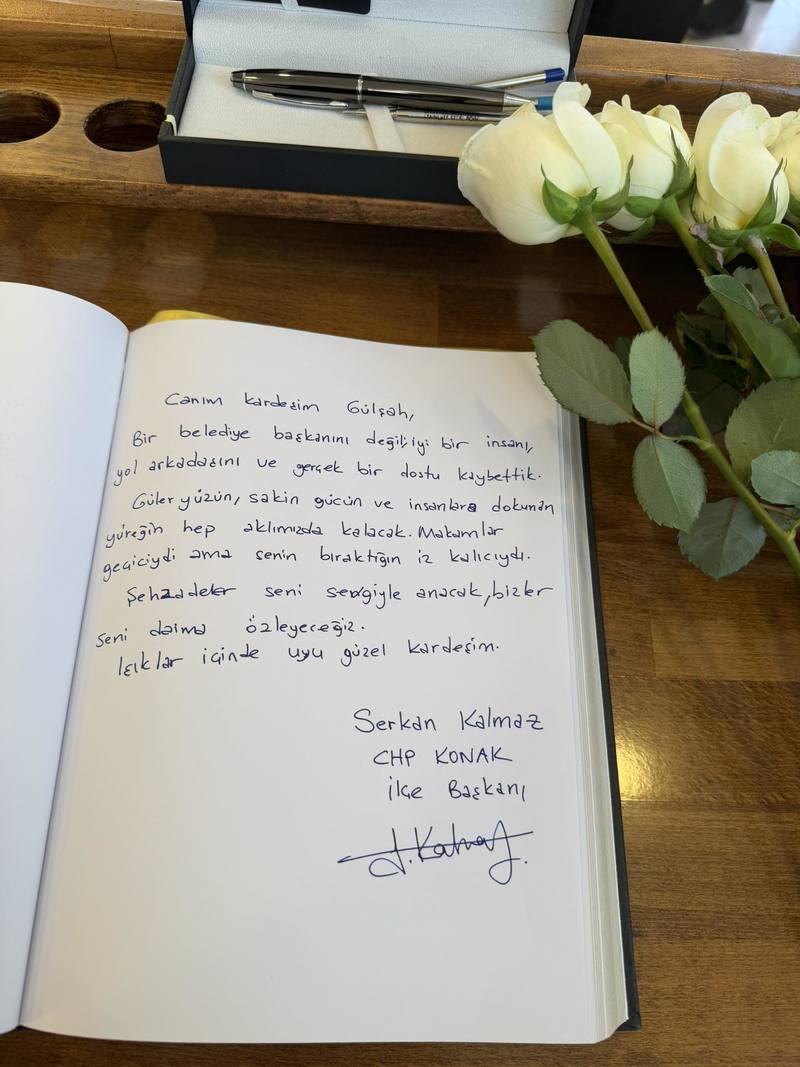 Canım kardeşim Gülşah,
Bir belediye başkanını değil, iyi bir insanı,
yol arkadaşını ve gerçek bir dostu kaybettik.
Güler yüzün, sakin gücün ve insanlara dokunan
yüreğin hep aklımızda kalacak. Makamlar
geçiciydi ama senin bıraktığın iz kalıcıydı.
Şehzadeler seni sevgiyle anacak, bizler
seni daima özleyeceğiz.
Işıklar içinde uyu güzel kardeşim.
Serkan Kalmaz
CHP KONAK
İlçe Başkanı
S. Kalmaz